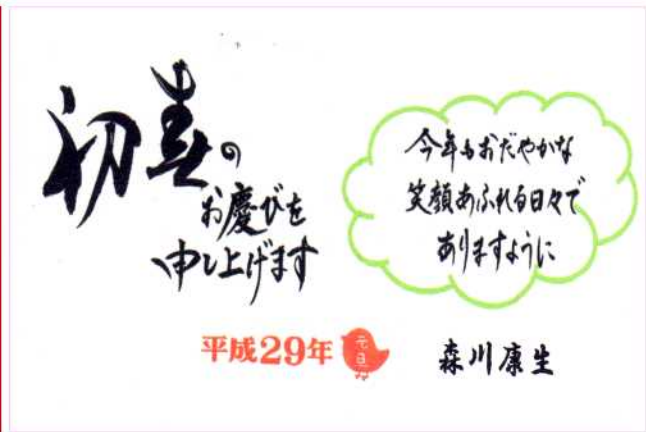 初春の
お慶びを
申し上げます
今年もおだやかな
笑顔あふれる日々で
ありますように
平成29年
元旦
森川康生